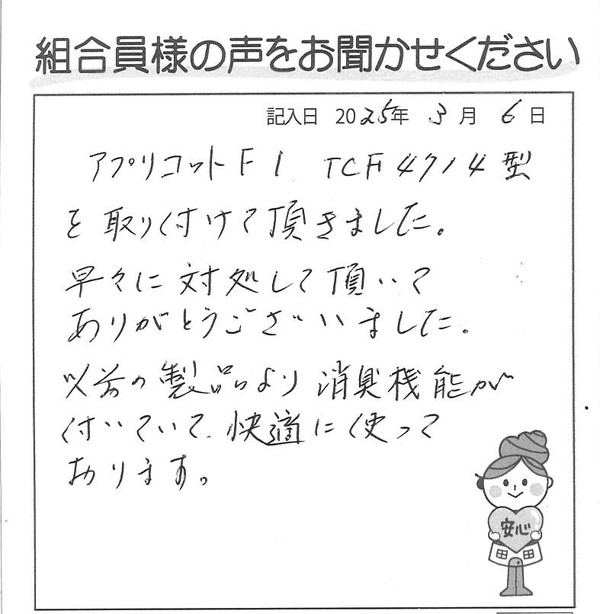 組合員様の声をお聞かせください
記入日 2025年 3月 6日
アプリコットF1 TCF4714型
を取り付けて頂きました。
早々に対処して頂いて
ありがとうございました。
以前の製品より消臭機能が
付いていて、快適に使って
おります。
安心